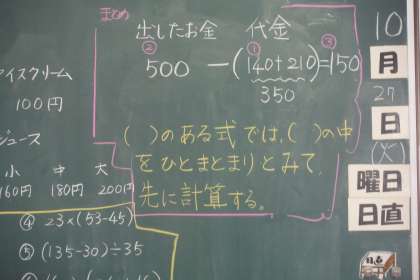 まとめ
出したお金 代金
② ① ③
500 －(140+210)=150
350
( )のある式では、( )の中
をひとまとまりとみて、
先に計算する。
アイスクリーム
100円
ジュース
小 中 大
160円 180円 200円
④ 23×(53-45)
⑤ (135-30)÷35
10
月
27
日
(火)
曜日
日直